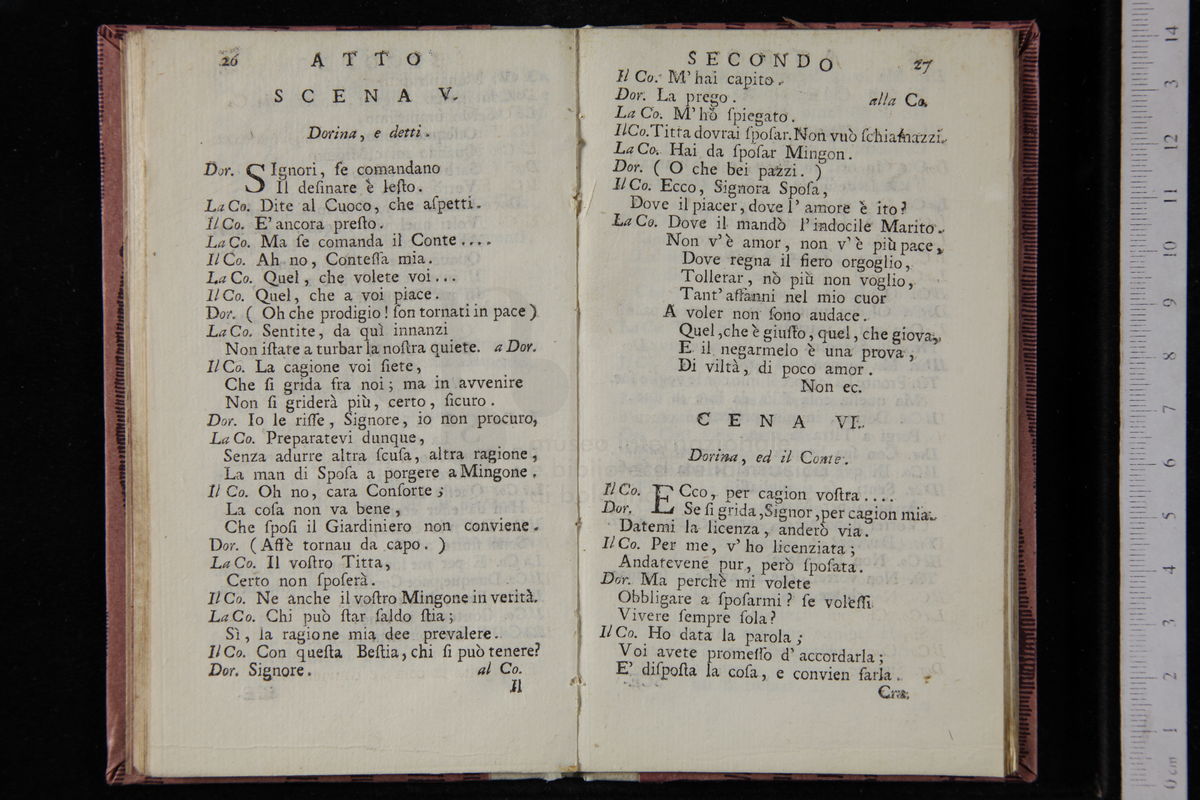 26 ATTO
SCENA V.
Dorina, e detti.
Dor. SIgnori, ſe comandano
Il deſinare è leſto.
La Co. Dite al Cuoco, che aſpetti.
Il Co. E' ancora preſto.
La Co. Ma ſe comanda il Conte....
Il Co. Ah no, Conteſſa mia.
La Co. Quel, che volete voi...
Il Co. Quel, che a voi piace.
Dor. ( Oh che prodigio! ſon tornati in pace )
La Co. Sentite, da quì innanzi
Non iſtate a turbar la noſtra quiete. a Dor.
Il Co. La cagione voi ſiete,
Che ſi grida fra noi; ma in avvenire
Non ſi griderà più, certo, ſicuro.
Dor. Io le riſſe, Signore, io non procuro,
La Co. Preparatevi dunque,
Senza adurre altra ſcuſa, altra ragione,
La man di Spoſa a porgere a Mingone.
Il Co. Oh no, cara Conſorte;
La coſa non va bene,
Che ſpoſi il Giardiniero non conviene.
Dor. ( Affè tornau da capo. )
La Co. Il voſtro Titta,
Certo non ſpoſerà.
Il Co. Ne anche il voſtro Mingone in verità.
La Co. Chi può ſtar ſaldo ſtia;
Sì, la ragione mia dee prevalere.
Il Co. Con queſta Beſtia, chi ſi può tenere?
Dor. Signore. al Co.
Il
SECONDO 27
Il Co. M'hai capito.
Dor. La prego. alla Co.
La Co. M'hò ſpiegato.
Il Co. Titta dovrai ſpoſar. Non vuò ſchiamazzi.
La Co. Hai da ſpoſar Mingon.
Dor. ( O che bei pazzi. )
Il Co. Ecco, Signora Spoſa,
Dove il piacer, dove l'amore è ito?
La Co. Dove il mandò l'indocile Marito.
Non v'è amor, non v'è più pace,
Dove regna il fiero orgoglio,
Tollerar, nò più non voglio,
Tant'affanni nel mio cuor
A voler non ſono audace.
Quel, che è giuſto, quel, che giova,
E il negarmelo è una prova,
Di viltà, di poco amor.
Non ec.
CENA VI.
Dorina, ed il Conte.
Il Co. ECco, per cagion voſtra....
Dor. Se ſi grida, Signor, per cagion mia.
Datemi la licenza, anderò via.
Il Co. Per me, v'ho licenziata;
Andatevene pur, però ſpoſata.
Dor. Ma perchè mi volete
Obbligare a ſpoſarmi? ſe voleſſi
Vivere ſempre ſola?
Il Co. Ho data la parola;
Voi avete promeſſo d'accordarla;
E' diſpoſta la coſa, e convien farla.
Cra.